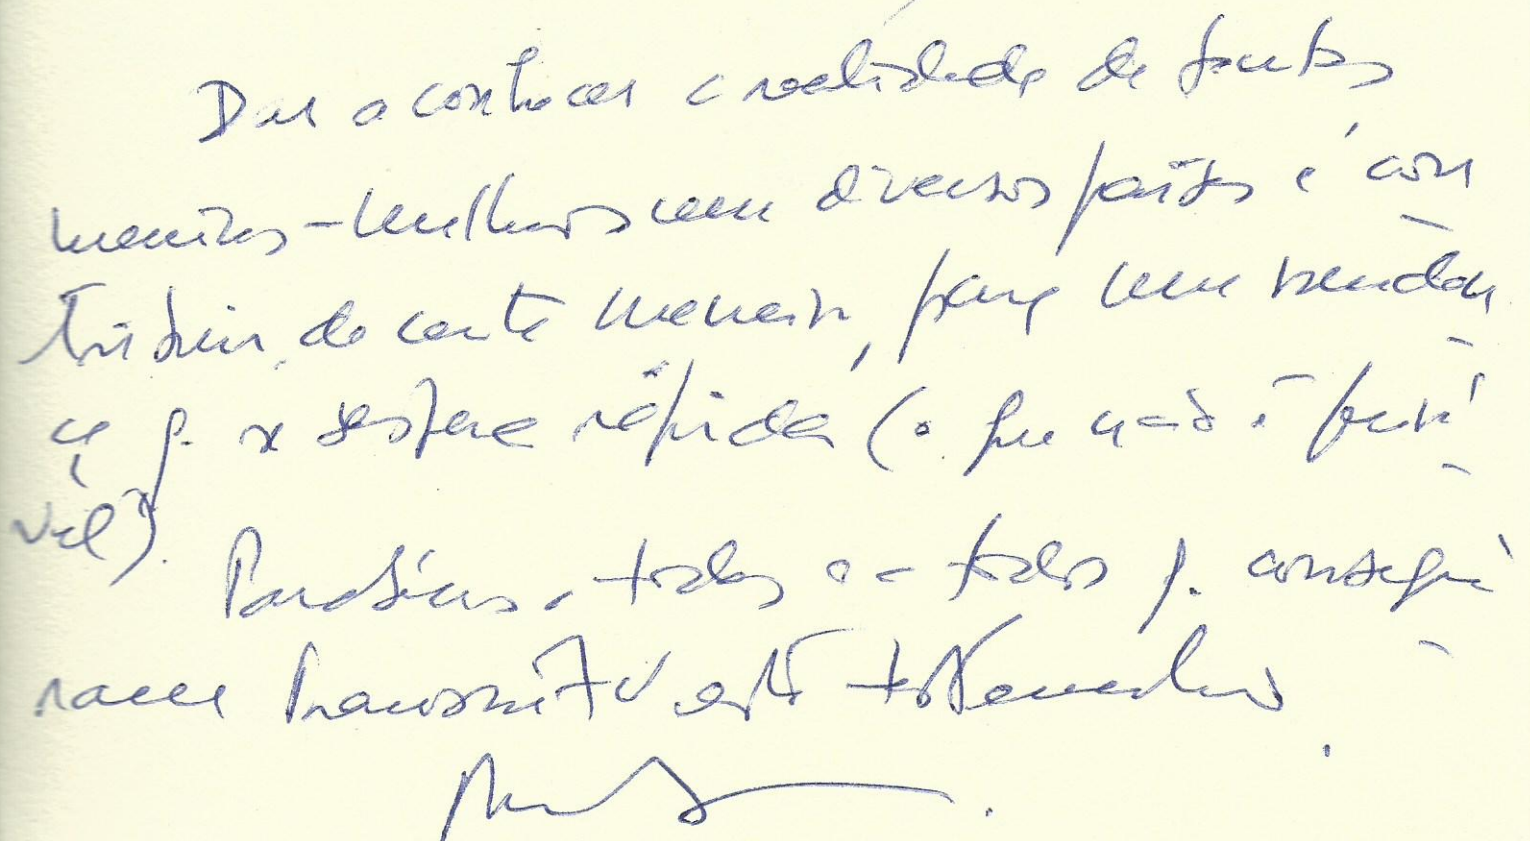 Dar a conhecer a realidade de tantas
meninas-mulheres em diversos países é con
tribuir, de certa maneira, para uma mudan
ça q. se espera rápida (o que não é possí
vel?).
Parabéns a todas e a todos q. consegui
ram transmitir este testemunho
.